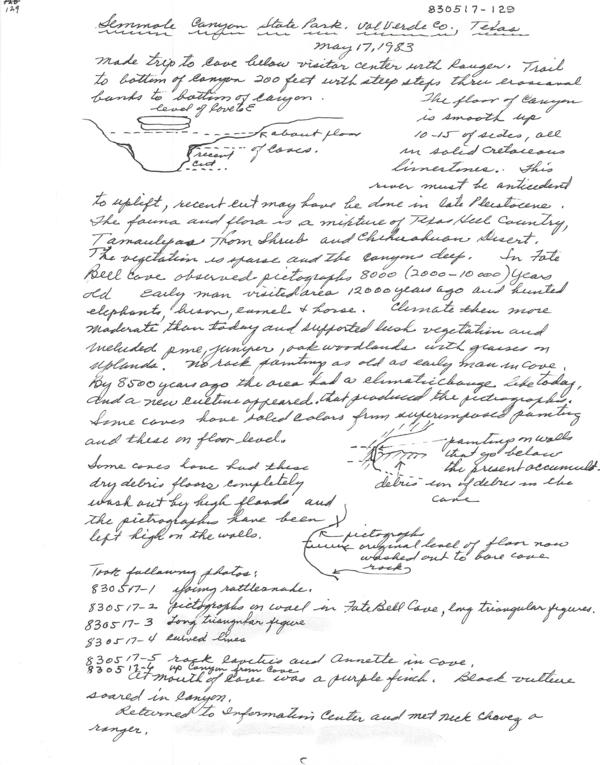 129
830517-129
Seminole Canyon State Park. Val Verde Co., Texas
May 17, 1983
Made trip to cave below visitor center with Ranger. Trail
to bottom of canyon 200 feet with steep steps thru erosional
banks to bottom of canyon. The floor of canyon
is smooth up
10-15 of sides, all
in solid Cretaceous
limestones. This
river must be anticedent
level of
about floor
of caves.
recent
cut
to uplift, recent cut may have be done in late Pleistocene.
The fauna and flora is a mixture of Texas Hill Country,
Tamaulepas Thorn Shrub and Chihuahuan Desert.
The vegetation is sparse and the canyons deep. In Fate
Bell cave observed pictographs 8000 (2000-10000) years
old. Early man visited area 12000 years ago and hunted
elephants, bison, camel & horse. Climate then more
moderate than today and supported lush vegetation and
included pine, juniper, oak woodlands with grasses on
uplands. No rock painting as old as early man in cove.
By 8500 years ago the area had a climatic change like today,
and a new culture appeared that produced the pictrographs.
Some caves have solid colors from superimposed painting
and these on floor level.
painting on walls
that go below
the present accumult-
ion of debris in the
cave
debris
Some caves have had these
dry debris floors completely
wash out by high floods and
the pictrographs have been
left high on the walls.
pictographs
original level of floor now
washed out to bare cave
rock
Took following photos:
830517-1 young rattlesnake.
830517-2 pictographs on wall in Fate Bell Cave, long triangular figures.
830517-3 Long triangular figure
830517-4 curved lines
830517-5 rock cavities and Annette in cove.
830517-6 up Canyon from Cave
At mouth of Cave was a purple finch. Black vulture
soared in canyon.
Returned to Information Center and met Nick Chavez a
ranger.